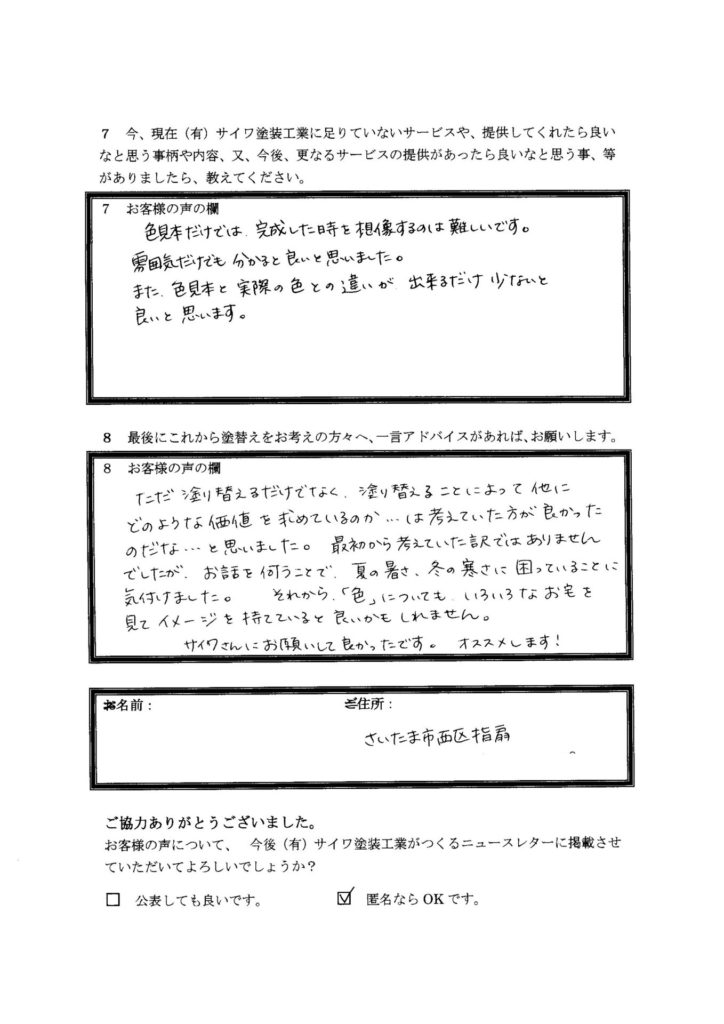 7　今、現在（有）サイワ塗装工業に足りていないサービスや、提供してくれたら良い
なと思う事柄や内容、又、今後、更なるサービスの提供があったら良いなと思う事、等
がありましたら、教えてください。
7　お客様の声の欄
色見本だけでは、完成した時を想像するのは難しいです。
雰囲気だけでも分かると良いと思いました。
また、色見本と実際の色との違いが、出来るだけ少ないと
良いと思います。
8　最後にこれから塗替えをお考えの方々へ、一言アドバイスがあれば、お願いします。
8　お客様の声の欄
ただ塗り替えるだけでなく、塗り替えることによって他に
どのような価値を求めているのか…は考えていた方が良かった
のだな…と思いました。　最初から考えていた訳ではありません
でしたが、お話を伺うことで、夏の暑さ、冬の寒さに困っていることに
気付けました。　それから、「色」についても、いろいろなお宅を
見てイメージを持てていると良いかもしれません。
サイワさんにお願いして良かったです。　オススメします！
お名前：　ご住所：
さいたま市西区指扇
ご協力ありがとうございました。
お客様の声について、　今後（有）サイワ塗装工業がつくるニュースレターに掲載させ
ていただいてよろしいでしょうか？
□　公表しても良いです。　☑　匿名なら OK です。